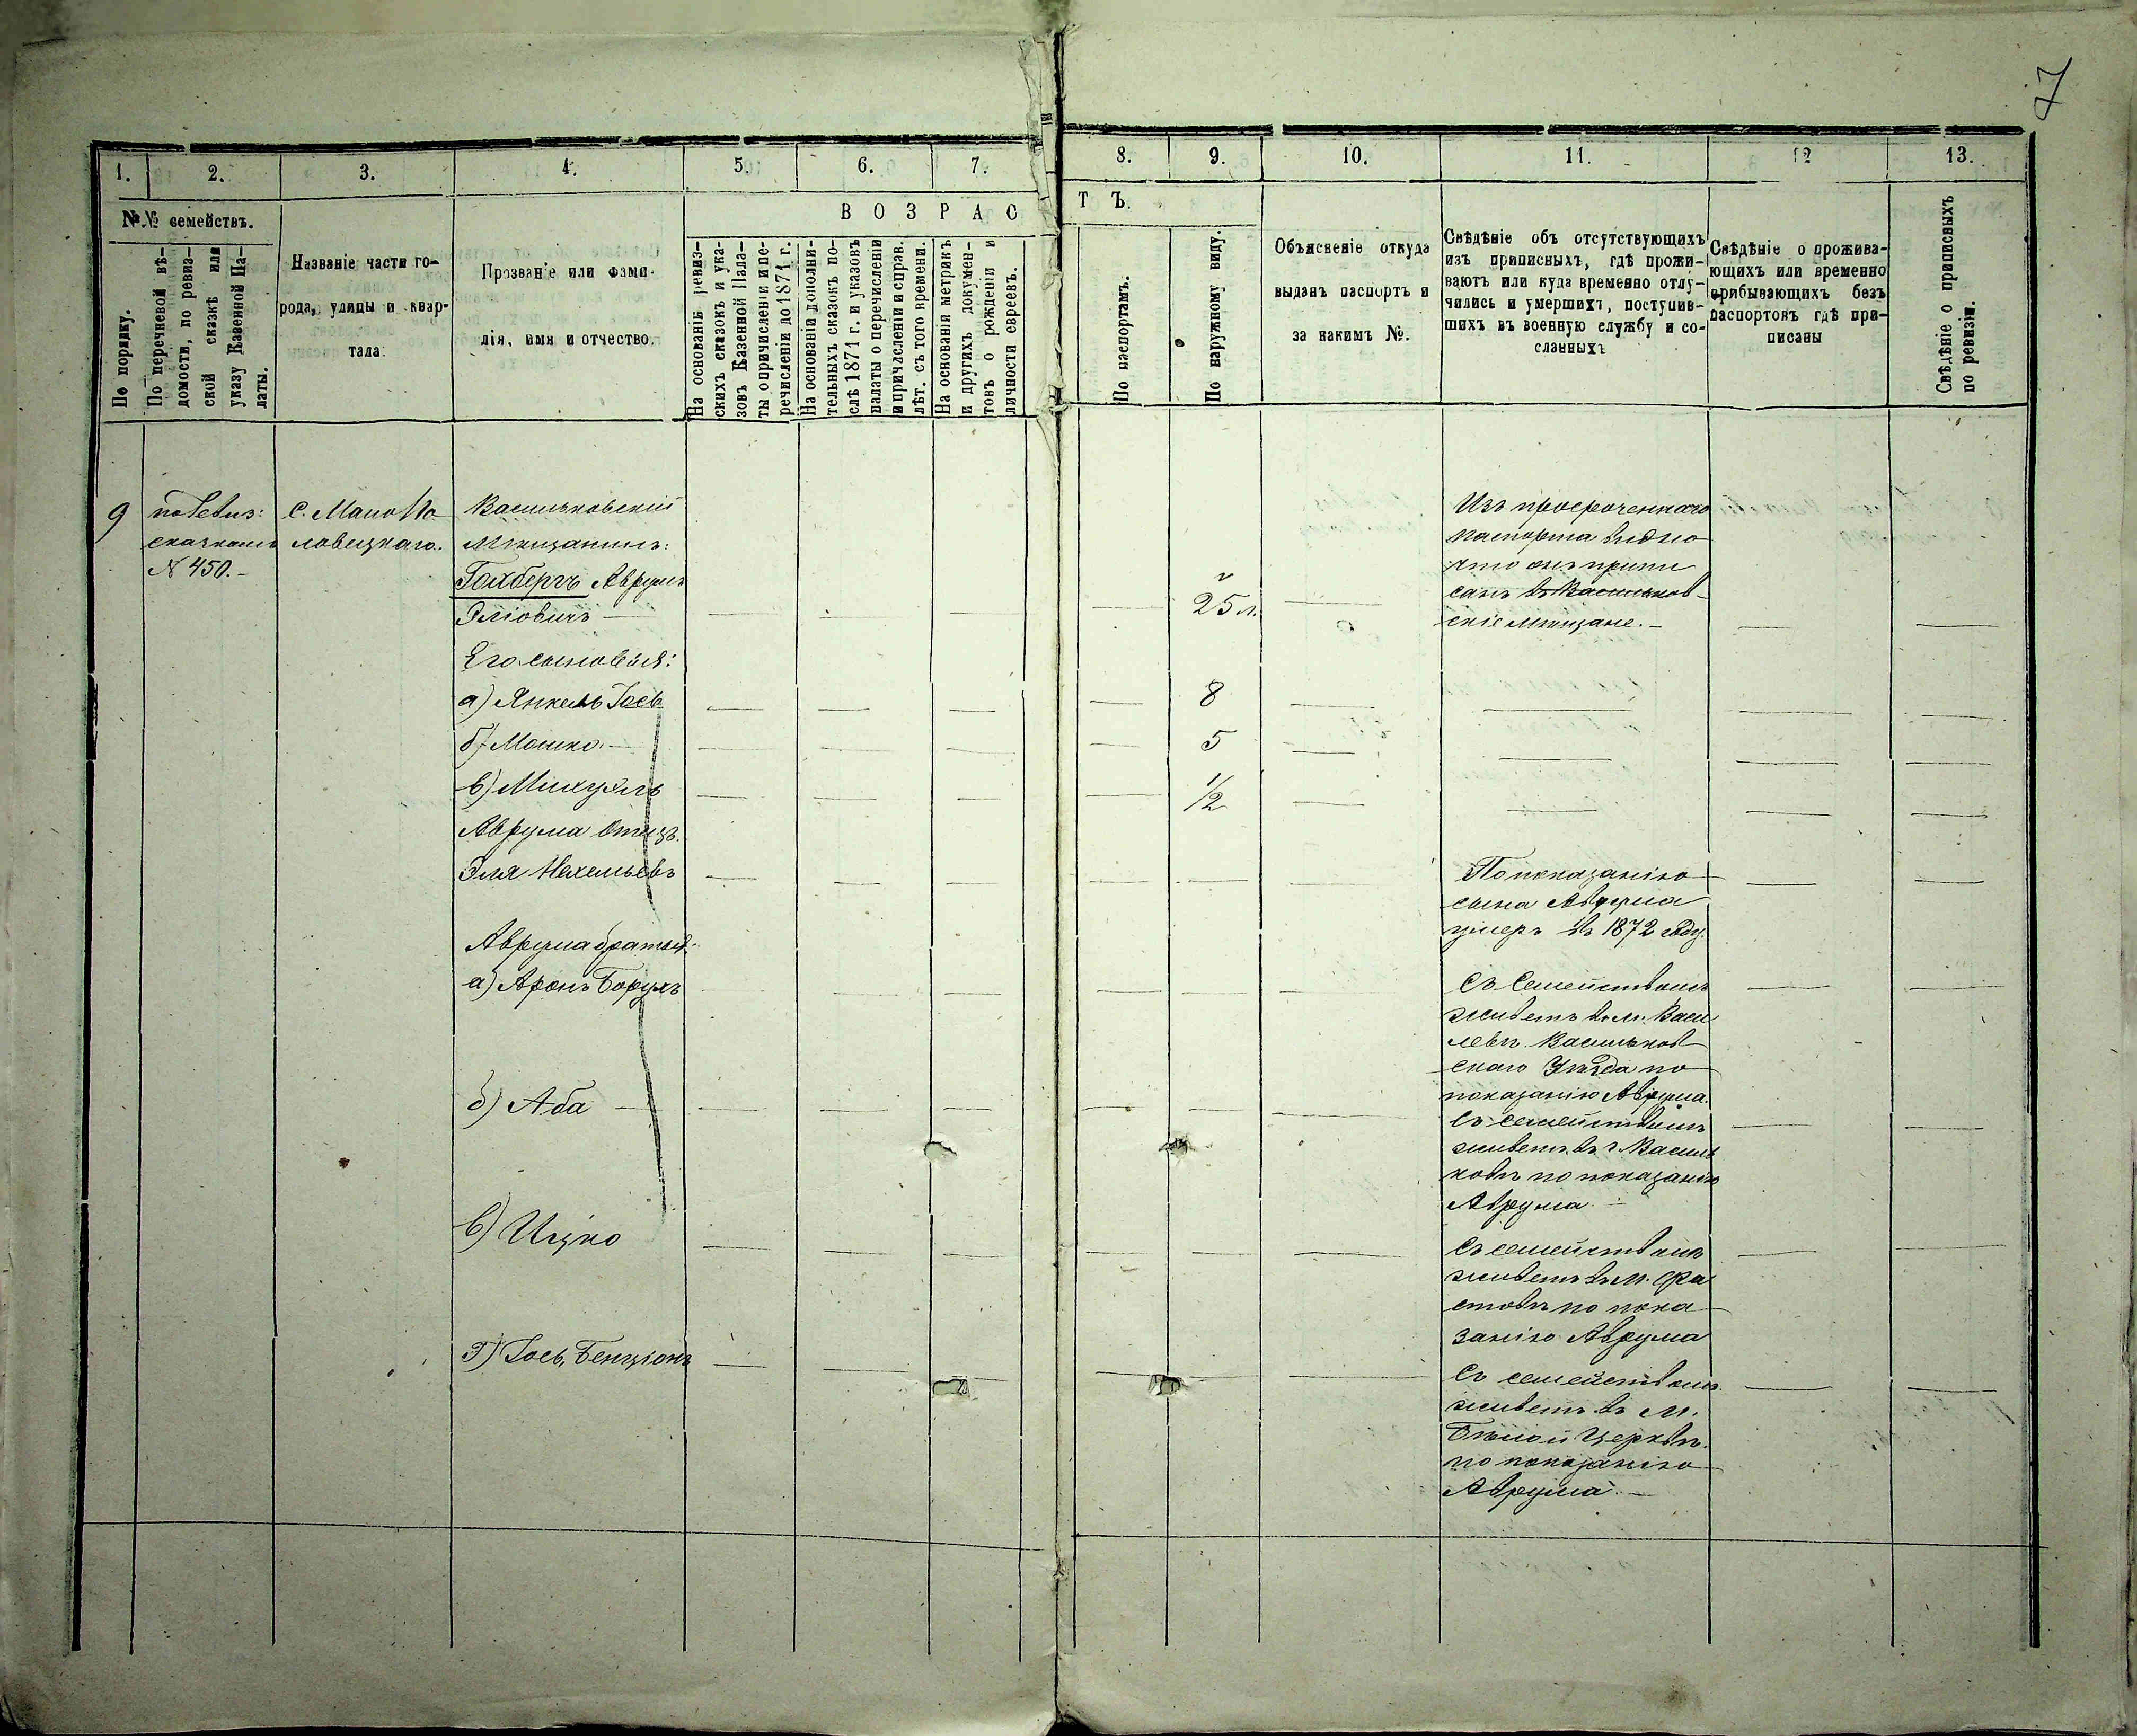 7
1. 2. 3. 4. 5. 6. 7. 8. 9. 10. 11. 12 13.
№№ семействъ.
По порядку.
По перечневой вѣ-
домости, по ревиз-
ской сказкѣ или
указу Казенной Па-
латы.
Названіе части го-
рода, улицы и квар-
тала.
Прозваніе или фами-
лія, имя и отчество.
ВОЗРАСТЪ.
На основаніи ревиз-
скихъ сказокъ и ука-
зовъ Казенной Пала-
ты о причисленіи и пе-
речисленіи до 1871 г.
На основаніи дополни-
тельныхъ сказокъ по-
слѣ 1871 г. и указовъ
палаты о перечисленіи
и причисленіи и справ.
лѣт. съ того времени.
На основаніи метрикъ
и другихъ докумен-
товъ о рожденіи и
личности евреевъ.
По паспортамъ.
По наружному виду.
Объясненіе откуда
выданъ паспортъ и
за какимъ №.
Свѣдѣніе объ отсутствующихъ
изъ приписныхъ, гдѣ прожи-
ваютъ или куда временно отлу-
чились и умершихъ, поступив-
шихъ въ военную службу и со-
сланныхъ
Свѣдѣніе о прожива-
ющихъ или временно
прибывающихъ безъ
паспортовъ гдѣ при-
писаны
Свѣдѣніе о приписныхъ
по ревизіи.
9
по Ревиз:
сказкамъ
N 450.-
С. Мало По
ловецкаго.
Васильковскій
Мѣщанинъ:
Гохбергъ Аврумъ
Эліовичъ
25 л.
Изъ просроченнаго
паспорта видно
что онъ припи
санъ въ Васильков-
скіе мѣщане.-
Его сыновья:
а) Янкель Іось
8
б) Мошко
5
в) Михуэль
1/2
Аврума Отецъ.
Эля Нехемьевъ
По показанію
сына Аврума
умеръ въ 1872 году.
Аврума братья:
а) Аронъ Борухъ
Съ Семействомъ
живетъ въ м. Васи
левѣ Васильков
скаго Уѣзда по
показанію Аврума.
б) Аба
Съ семействомъ
живетъ въ г Василь
ковѣ по показанію
Аврума.-
в) Ицко
Съ семействомъ
живетъ въ м. Фа
стовѣ по пока
занію Аврума
г) Іось, Бенціонъ
Съ семействомъ
живетъ въ м.
Бѣлой Церквѣ.
по показанію
Аврума.-